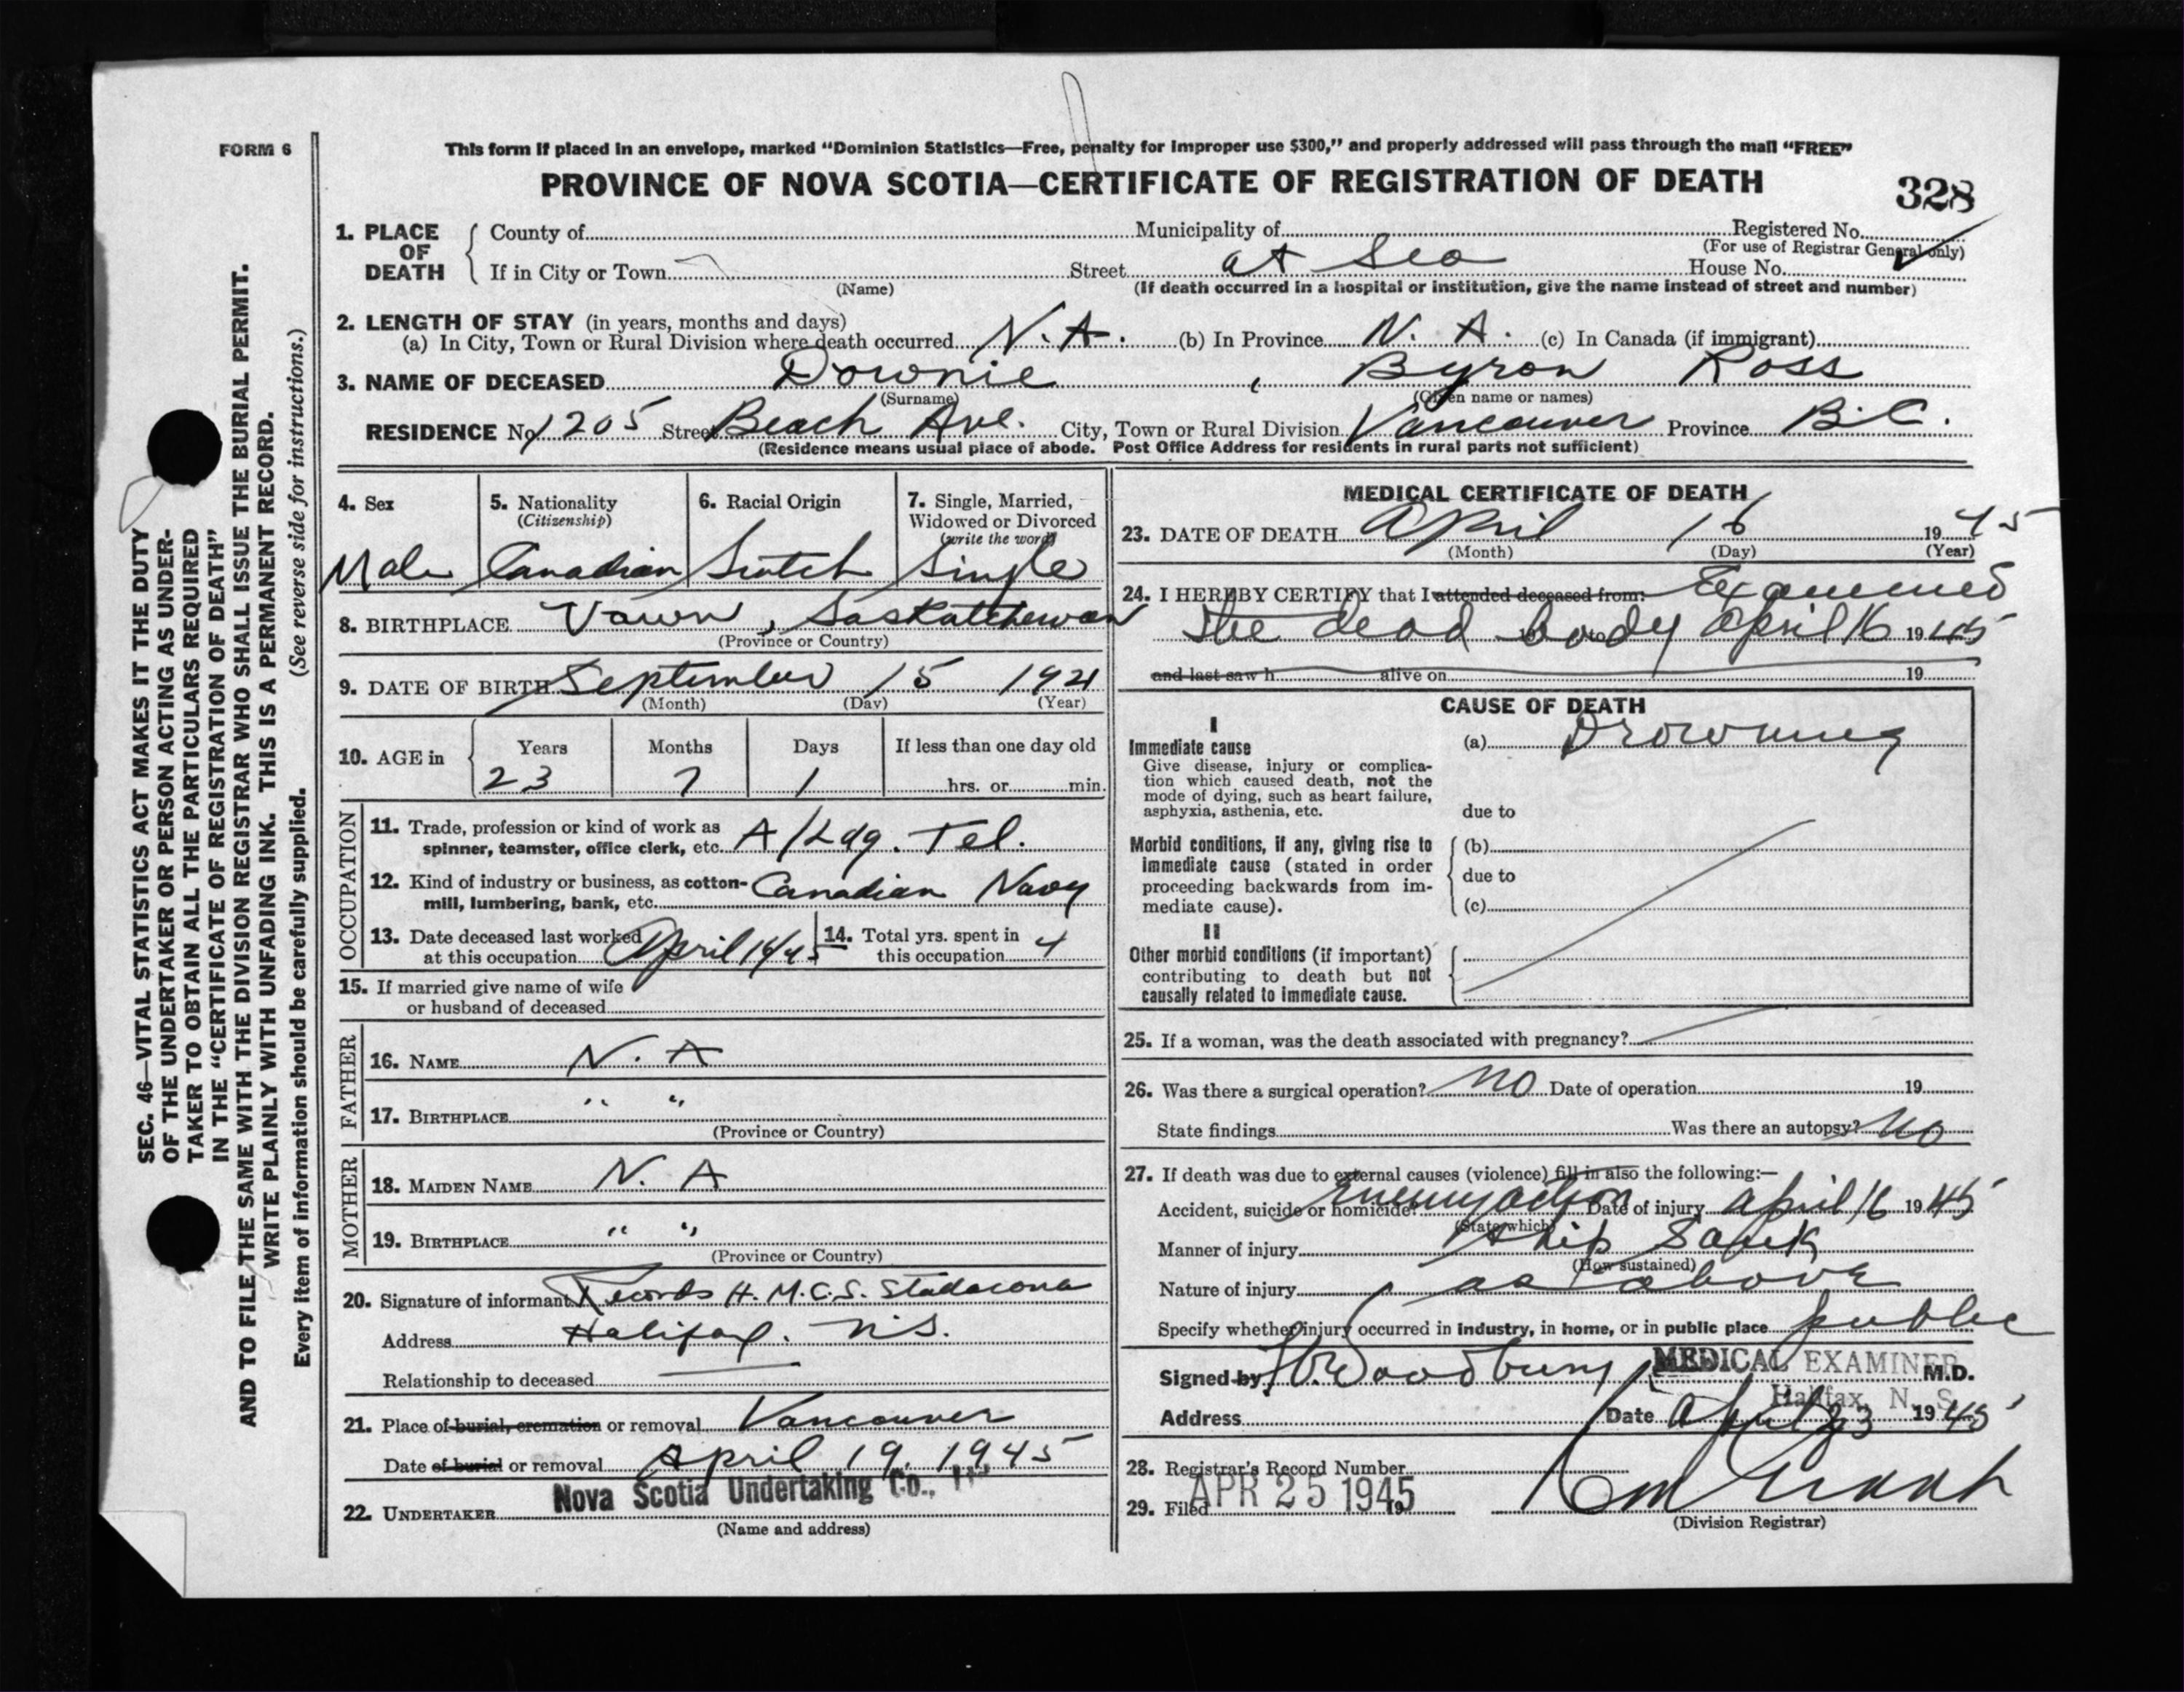 FORM 6
This form if placed in an envelope, marked "Dominion Statistics—Free, penalty for improper use $300," and properly addressed will pass through the mail "FREE"
PROVINCE OF NOVA SCOTIA—CERTIFICATE OF REGISTRATION OF DEATH
328
1. PLACE OF DEATH County of Municipality of Registered No.
(For use of Registrar General only)
If in City or Town Street at Sea House No.
(Name) (If death occurred in a hospital or institution, give the name instead of street and number)
2. LENGTH OF STAY (in years, months and days)
(a) In City, Town or Rural Division where death occurred N.A. (b) In Province N.A. (c) In Canada (if immigrant)
3. NAME OF DECEASED Downie, Byron Ross
(Surname) (Given name or names)
RESIDENCE No. 1205 Street Beach Ave. City, Town or Rural Division Vancouver Province B.C.
(Residence means usual place of abode. Post Office Address for residents in rural parts not sufficient)
4. Sex
Male
5. Nationality
(Citizenship)
Canadian
6. Racial Origin
Scotch
7. Single, Married,
Widowed or Divorced
(write the word)
Single
8. BIRTHPLACE Vawn, Saskatchewan
(Province or Country)
9. DATE OF BIRTH September 15 1921
(Month) (Day) (Year)
10. AGE in Years Months Days If less than one day old
23 7 1 hrs. or min.
OCCUPATION
11. Trade, profession or kind of work as
spinner, teamster, office clerk, etc. A/Ldg. Tel.
12. Kind of industry or business, as cotton-
mill, lumbering, bank, etc. Canadian Navy
13. Date deceased last worked
at this occupation April 16/45
14. Total yrs. spent in
this occupation 4
15. If married give name of wife
or husband of deceased
FATHER
16. NAME N.A
17. BIRTHPLACE " "
(Province or Country)
MOTHER
18. MAIDEN NAME N. A
19. BIRTHPLACE " "
(Province or Country)
20. Signature of informant Records H.M.C.S. Stadacona
Address Halifax. N.S.
Relationship to deceased
21. Place of burial, cremation or removal Vancouver
Date of burial or removal April 19, 1945
22. UNDERTAKER Nova Scotia Undertaking Co.,
(Name and address)
MEDICAL CERTIFICATE OF DEATH
23. DATE OF DEATH April 16 1945
(Month) (Day) (Year)
24. I HEREBY CERTIFY that I attended deceased from: Examined
the dead body April 16 1945
and last saw h alive on 19
CAUSE OF DEATH
I
Immediate cause (a) Drowning
Give disease, injury or complica-
tion which caused death, not the
mode of dying, such as heart failure,
asphyxia, asthenia, etc. due to
Morbid conditions, if any, giving rise to (b)
immediate cause (stated in order
proceeding backwards from im- due to
mediate cause). (c)
II
Other morbid conditions (if important)
contributing to death but not
causally related to immediate cause.
25. If a woman, was the death associated with pregnancy?
26. Was there a surgical operation? No Date of operation 19
State findings Was there an autopsy? No
27. If death was due to external causes (violence) fill in also the following:—
Accident, suicide or homicide? Enemy action Date of injury April 16 1945
(State which)
Manner of injury Ship Sank
(How sustained)
Nature of injury as above
Specify whether injury occurred in industry, in home, or in public place public
Signed by Woodbury MEDICAL EXAMINER M.D.
Halifax, N. S.
Address Date April 23 1945
28. Registrar's Record Number
29. Filed APR 25 1945 19
(Division Registrar)
SEC. 46—VITAL STATISTICS ACT MAKES IT THE DUTY
OF THE UNDERTAKER OR PERSON ACTING AS UNDER-
TAKER TO OBTAIN ALL THE PARTICULARS REQUIRED
IN THE "CERTIFICATE OF REGISTRATION OF DEATH"
AND TO FILE THE SAME WITH THE DIVISION REGISTRAR WHO SHALL ISSUE THE BURIAL PERMIT.
WRITE PLAINLY WITH UNFADING INK. THIS IS A PERMANENT RECORD.
Every item of information should be carefully supplied. (See reverse side for instructions.)